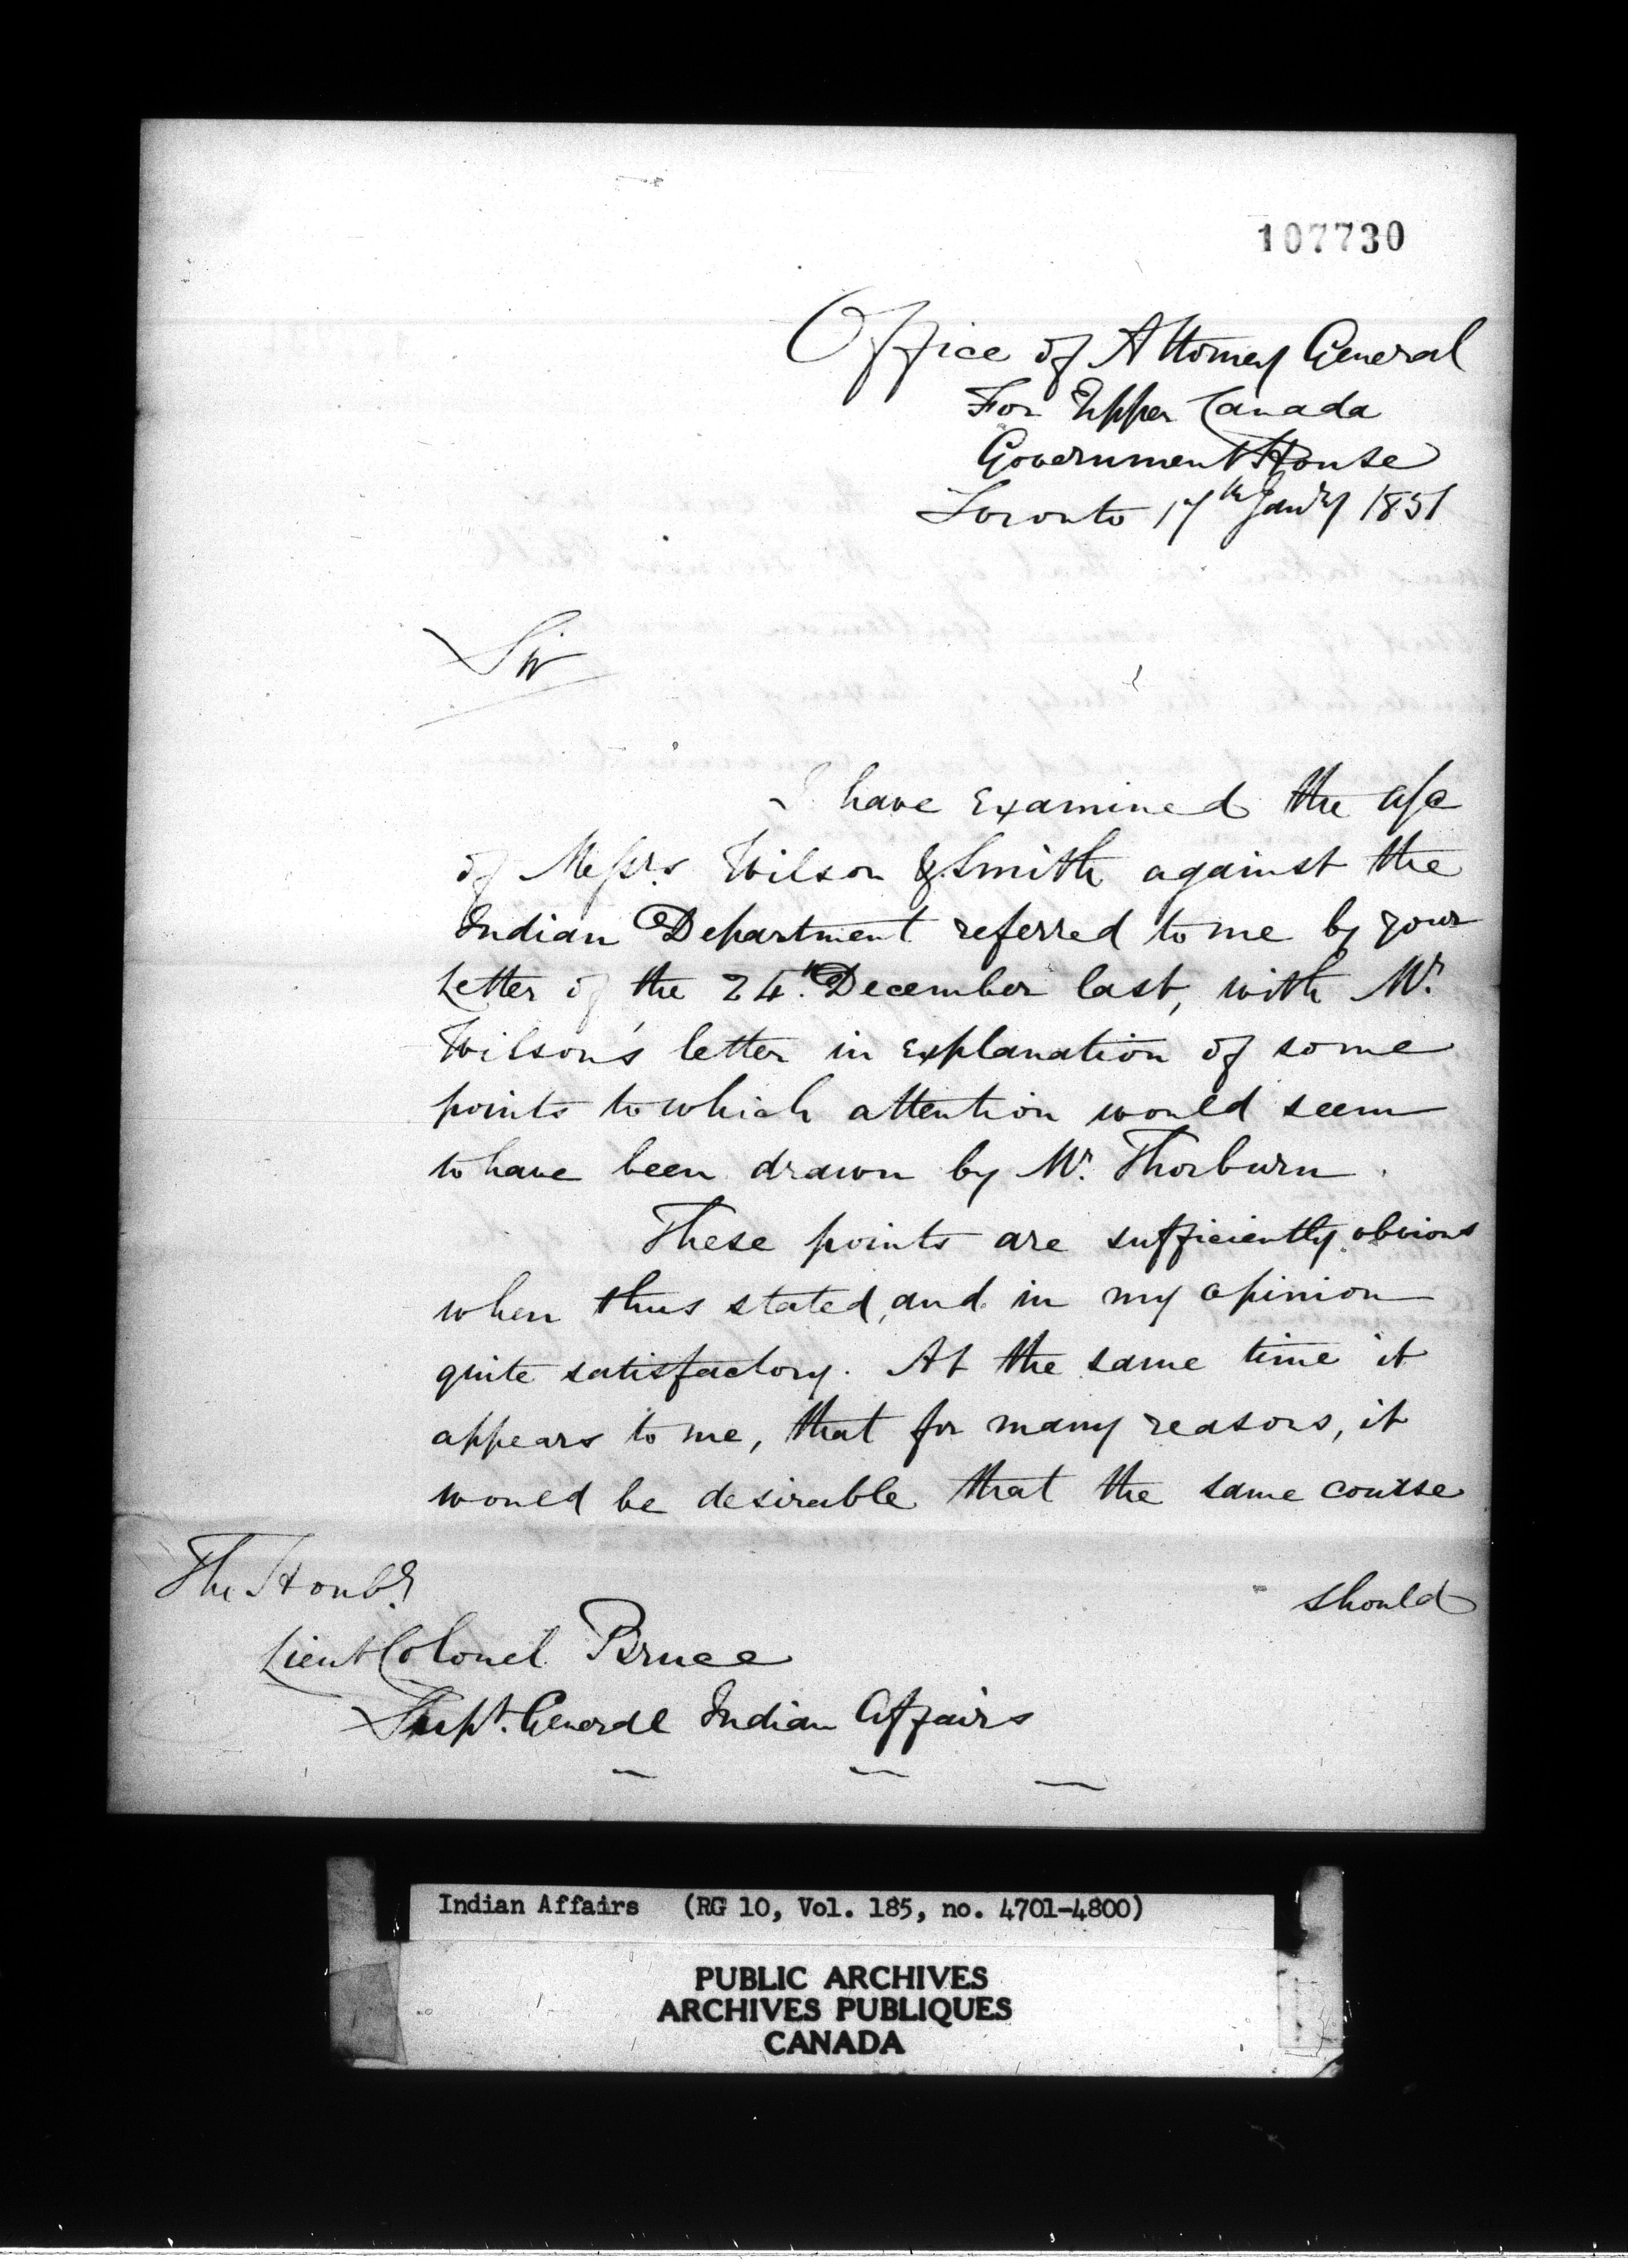 107730
Office of Attorney General
For Upper Canada
Government House
Toronto 17th Jany 1851
Sir
I have examined the a/c
of Messrs Wilson & Smith against the
Indian Department referred to me by your
Letter of the 24th December last, with Mr.
Wilson's letter in explanation of some
points to which attention would seem
to have been drawn by Mr. Thorburn.
These points are sufficiently obvious
when thus stated, and in my opinion
quite satisfactory. At the same time it
appears to me, that for many reasons, it
would be desirable that the same course
should
The Honble
Lieut Colonel Bruce
Supt. General Indian Affairs
Indian Affairs (RG 10, Vol. 185, no. 4701-4800)
PUBLIC ARCHIVES
ARCHIVES PUBLIQUES
CANADA